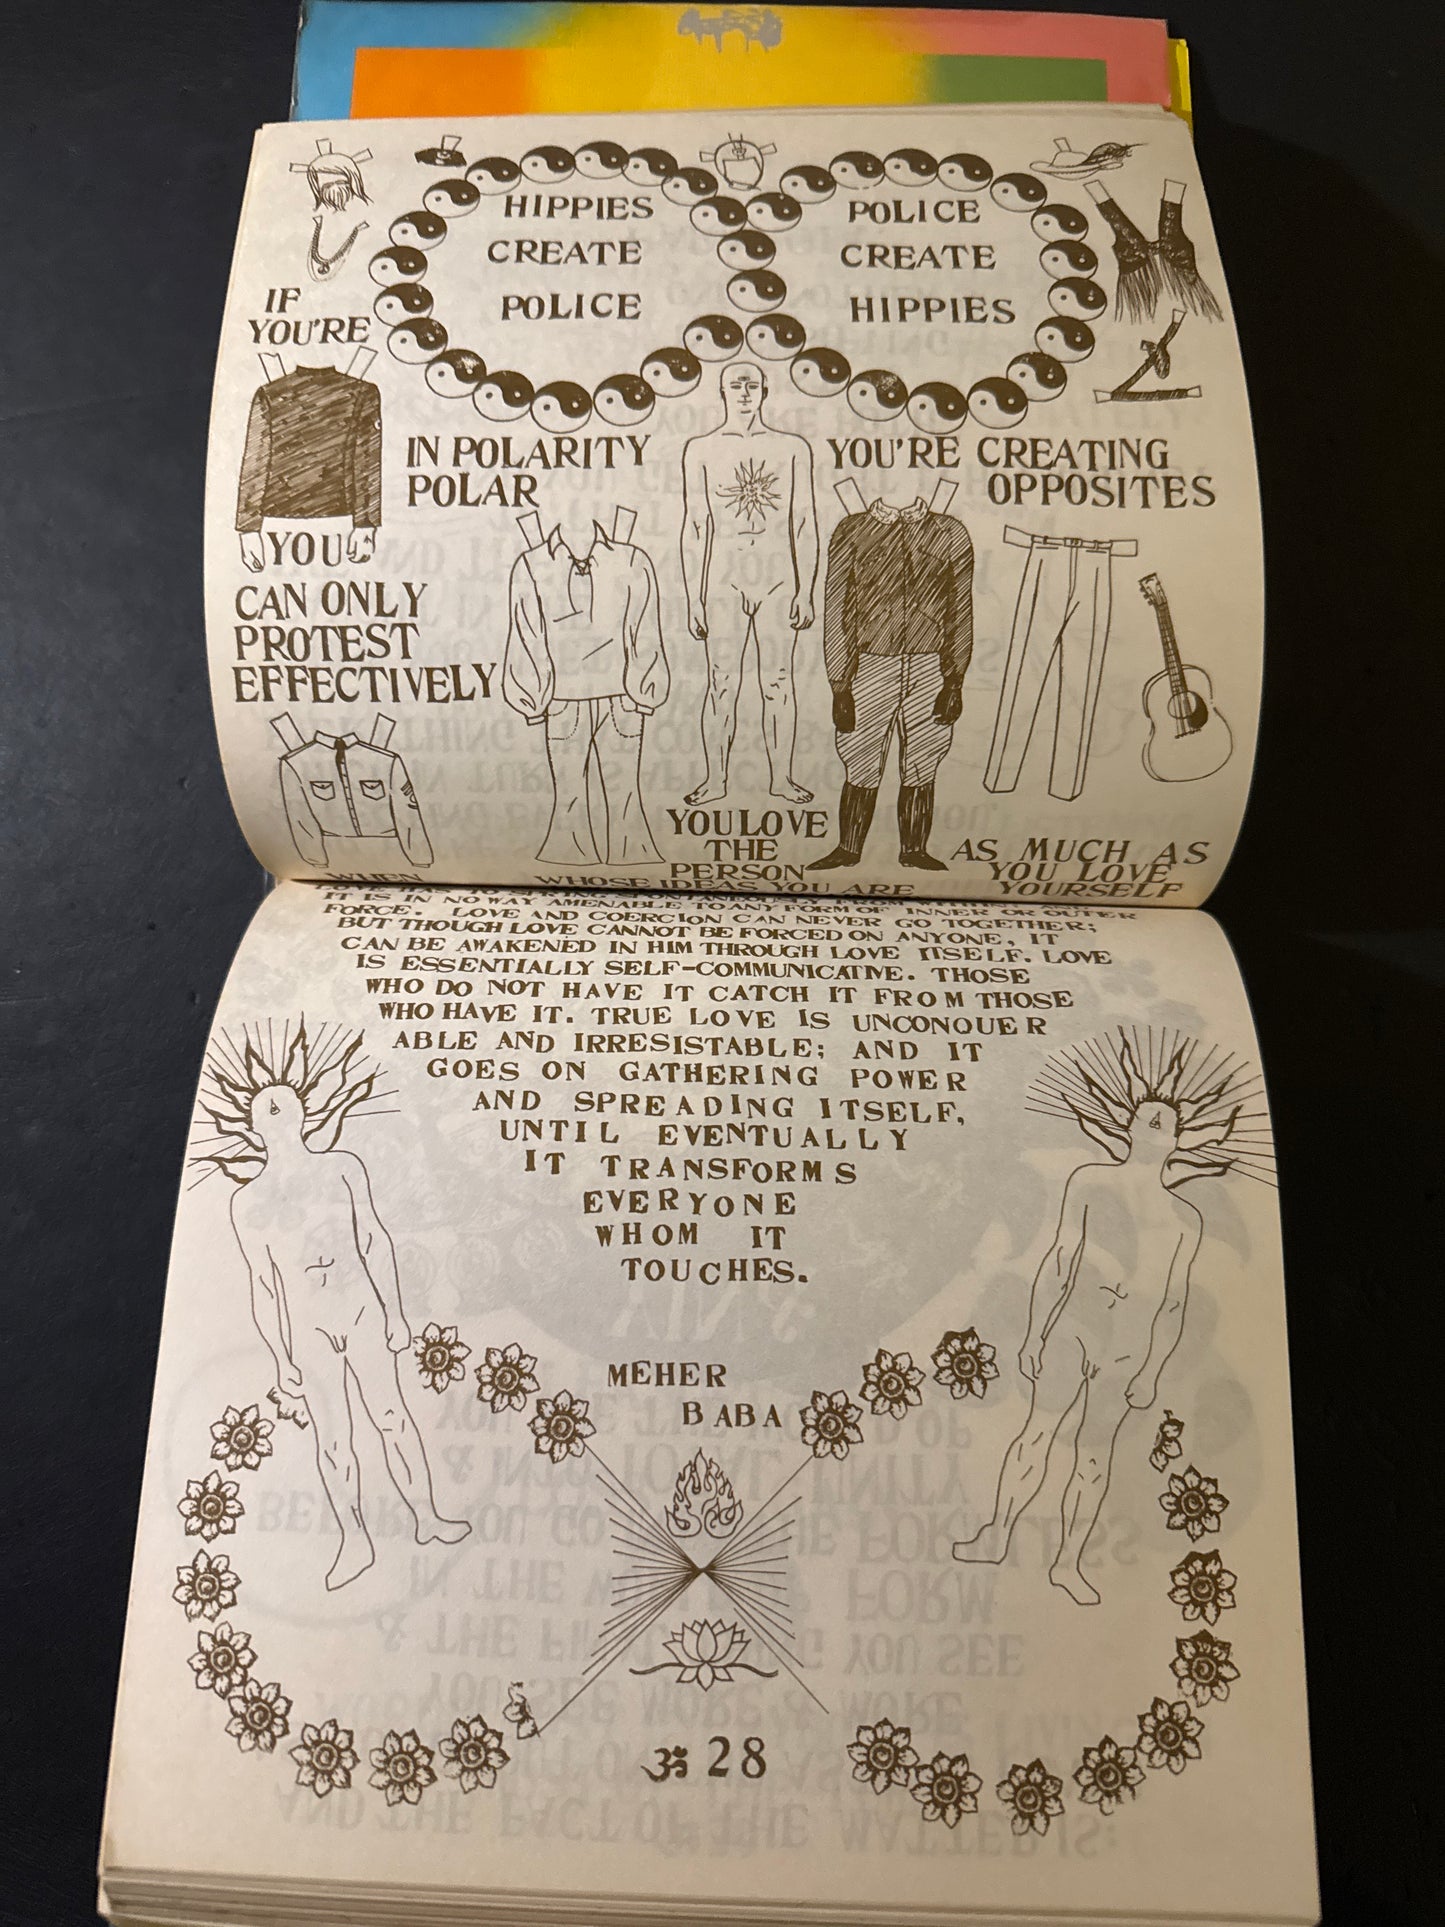 HIPPIES
CREATE
POLICE
POLICE
CREATE
HIPPIES
IF
YOU'RE
IN POLARITY
POLAR
YOU'RE CREATING
OPPOSITES
YOU
CAN ONLY
PROTEST
EFFECTIVELY
WHEN
YOU LOVE
THE
PERSON
WHOSE IDEAS YOU ARE
AS MUCH AS
YOU LOVE
YOURSELF
LOVE HAS TO SPRING SPONTANEOUSLY FROM WITHIN
IT IS IN NO WAY AMENABLE TO ANY FORM OF INNER OR OUTER
FORCE. LOVE AND COERCION CAN NEVER GO TOGETHER;
BUT THOUGH LOVE CANNOT BE FORCED ON ANYONE, IT
CAN BE AWAKENED IN HIM THROUGH LOVE ITSELF. LOVE
IS ESSENTIALLY SELF-COMMUNICATIVE. THOSE
WHO DO NOT HAVE IT CATCH IT FROM THOSE
WHO HAVE IT. TRUE LOVE IS UNCONQUER
ABLE AND IRRESISTABLE; AND IT
GOES ON GATHERING POWER
AND SPREADING ITSELF,
UNTIL EVENTUALLY
IT TRANSFORMS
EVERYONE
WHOM IT
TOUCHES.
MEHER
BABA
ॐ 28